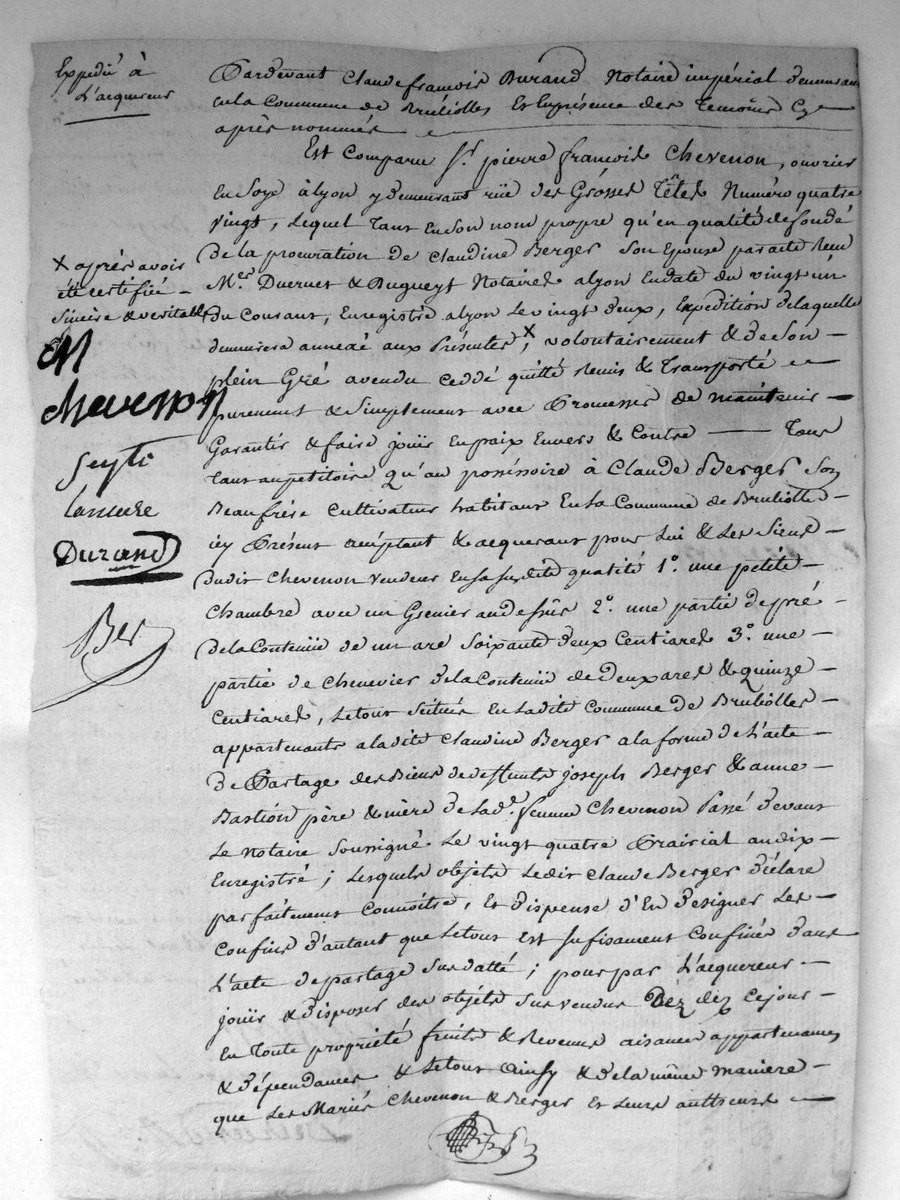 Expedié à
L'acquereur
Pardevant Claude françois Durand Notaire impérial demeurant
en la Commune de Brulliolles Et En présence des Temoins Cy
après nommés
Est Comparu Sr. pierre françois Chevenon, ouvrier
En Soye à Lyon y demeurant rüe des Grosses Têtes Numéro quatre
vingt, Lequel Tant En Son nom propre qu'en qualité de fondé
de la procuration de Claudine Berger Son Epouse par acte Recu
Mes. Duernet & Dugueyt Notaires a Lyon En date du vingt un
du Courant, Enregistré a Lyon Le vingt deux, Expedition de laquelle
demeurera annexé aux Présentes, x volontairement & de Son
plein Gré a vendu Ceddé quitté Remis & Transporté
purement & Simplement avec Promesses de maintenir
Garantir & faire joüir En paix Envers & Contre Tous
Tant au petitoire qu'au possissoire à Claude Berger Son
Beaufrère Cultivateur habitant En La Commune de Brulliolles
icy Présent acceptant & acquerant pour Lui & Les Siens
dudit Chevenon vendeur En Sa Susdite qualité 1o. une petite
Chambre avec un Grenier au dessus 2o. une partie de pré
de la Contenüe de un are Soixante deux Centiares 3o. une
partie de Chenevier de la Contenüe de Deux ares & quinze
Centiares, Le tout Scitués En Ladite Commune de Brulliolles
appartenants a Ladite Claudine Berger a la forme de L'acte
de Partage des Biens de deffunts joseph Berger & anne
Bastion père & mère de Lade. femme Chevenon Passé devant
Le Notaire Soussigné Le vingt quatre Prairial an dix
Enregistré ; Lesquels objets Ledit Claude Berger déclare
parfaitement Connoître, Et dispense d'En désigner Les
Confins d'autant que Le tout Est Sufisament Confinés dans
L'acte de partage Sus datté ; pour par L'acquereur
joüir & disposer des objets Sus vendus Dèz dez Ce jour
En Toute propriété fruits & Revenus aisances appartenances
& dépendances & Le tout Ainsy & de la même maniere
que Les Mariés Chevenon & Berger Et Leurs autheurs
x après avoir
été certifié
Sincère & veritable
Chevenon
Durand
Ber